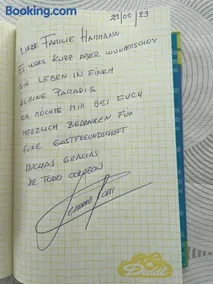 Booking.com
29/05/23
LIEBE FAMILIE HAMMANN
ES WAR KURZ ABER WUNDERSCHÖN
SIE LEBEN IN EINEM
KLEINE PARADIS
ICH MÖCHTE MIR BEI EUCH
HERZLICH BEDANKEN FÜR
EURE GASTFREUNDSCHAFT
MUCHAS GRACIAS
DE TODO CORAZON
Diddl